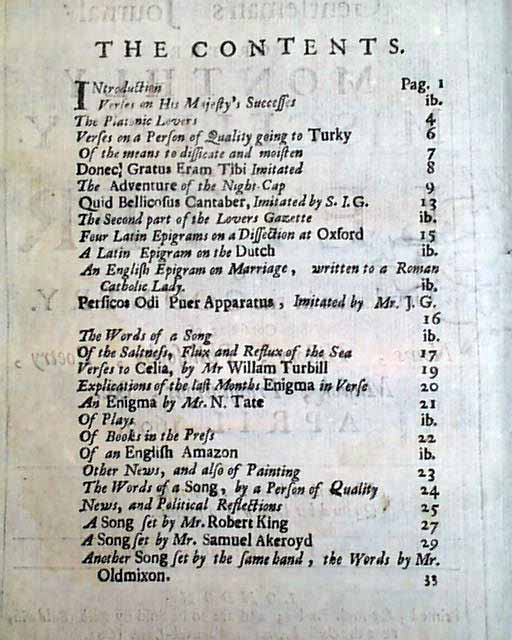 THE CONTENTS.
INtroduction Pag. 1
Verses on His Majesty's Successes ib.
The Platonic Lovers 4
Verses on a Person of Quality going to Turky 6
Of the means to dissicate and moisten 7
Donec Gratus Eram Tibi Imitated 8
The Adventure of the Night-Cap 9
Quid Bellicosus Cantaber, Imitated by S. I. G. 13
The Second part of the Lovers Gazette ib.
Four Latin Epigrams on a Dissection at Oxford 15
A Latin Epigram on the Dutch ib.
An English Epigram on Marriage, written to a Roman
Catholic Lady. ib.
Persicos Odi Puer Apparatus, Imitated by Mr. J. G.
16
The Words of a Song ib.
Of the Saltness, Flux and Reflux of the Sea 17
Verses to Celia, by Mr Willam Turbill 19
Explications of the last Months Enigma in Verse 20
An Enigma by Mr. N. Tate 21
Of Plays ib.
Of Books in the Press 22
Of an English Amazon ib.
Other News, and also of Painting 23
The Words of a Song, by a Person of Quality 24
News, and Political Reflections 25
A Song set by Mr. Robert King 27
A Song set by Mr. Samuel Akeroyd 29
Another Song set by the same hand, the Words by Mr.
Oldmixon. 33